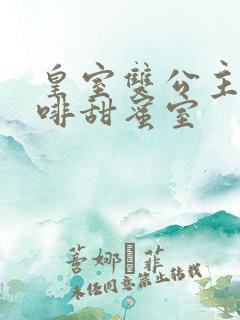 皇室雙公主
啡甜蜜室
蓍娜 菲
未经同意禁止转载